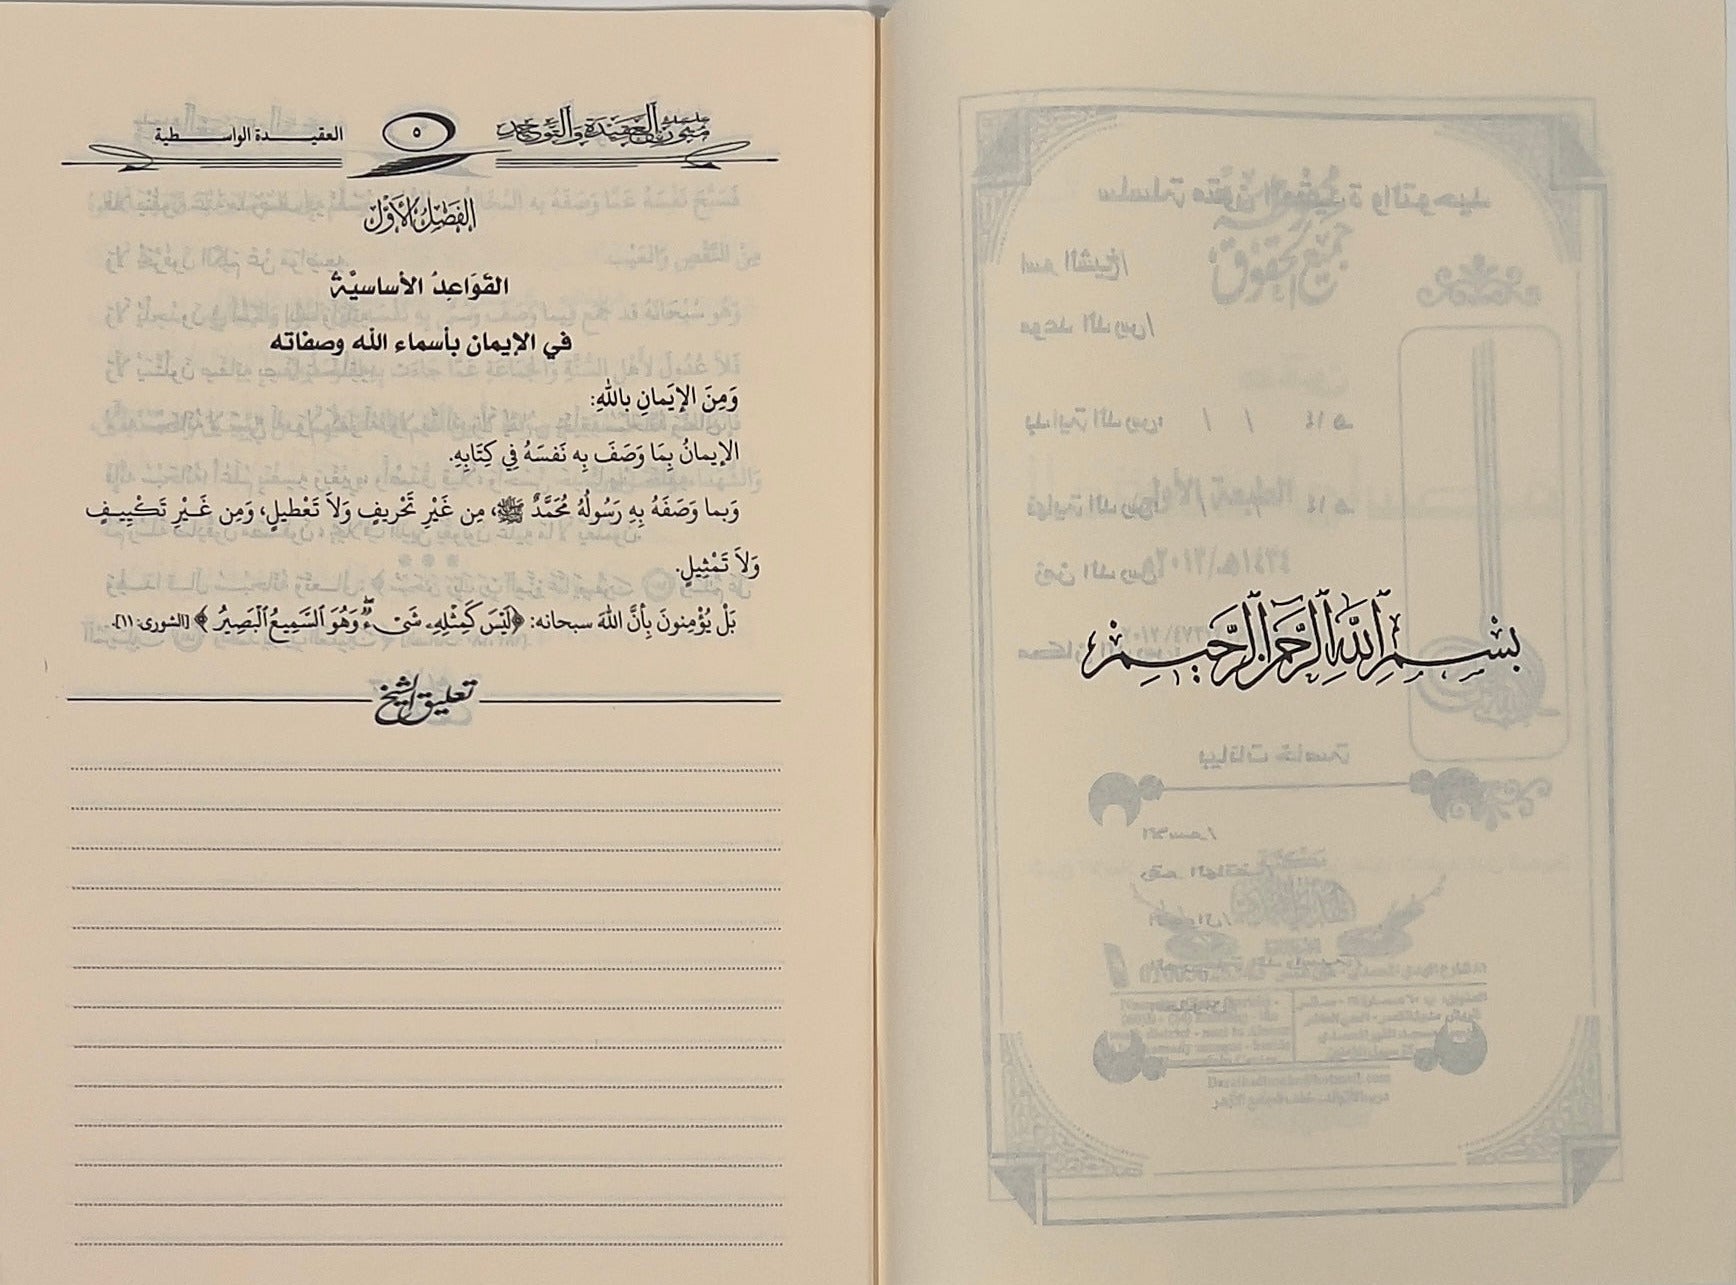 بسم الله الرحمن الرحيم
سلسلة متون العقيدة والتوحيد ٥ العقيدة الواسطية
الفصل الأول
القَوَاعِدُ الأساسيَّة
في الإيمان بأسماء الله وصفاته
وَمِنَ الإيَمانِ بِاللهِ:
الإيمانُ بِمَا وَصَفَ بِه نَفسَهُ فِي كِتَابِهِ.
وَبما وَصَفَهُ بِهِ رَسُولُهُ مُحَمَّدٌ ﷺ، مِن غَيْرِ تَحْرِيفٍ وَلاَ تَعْطِيلٍ، وَمِن غَيْرِ تَكْيِيفٍ
وَلاَ تَمْثِيلٍ.
بَلْ يُؤْمِنونَ بِأنَّ اللهَ سبحانه: ﴿لَيْسَ كَمِثْلِهِۦ شَىْءٌۖ وَهُوَ ٱلسَّمِيعُ ٱلْبَصِيرُ﴾ [الشورى: ١١].
تعليق الشيخ